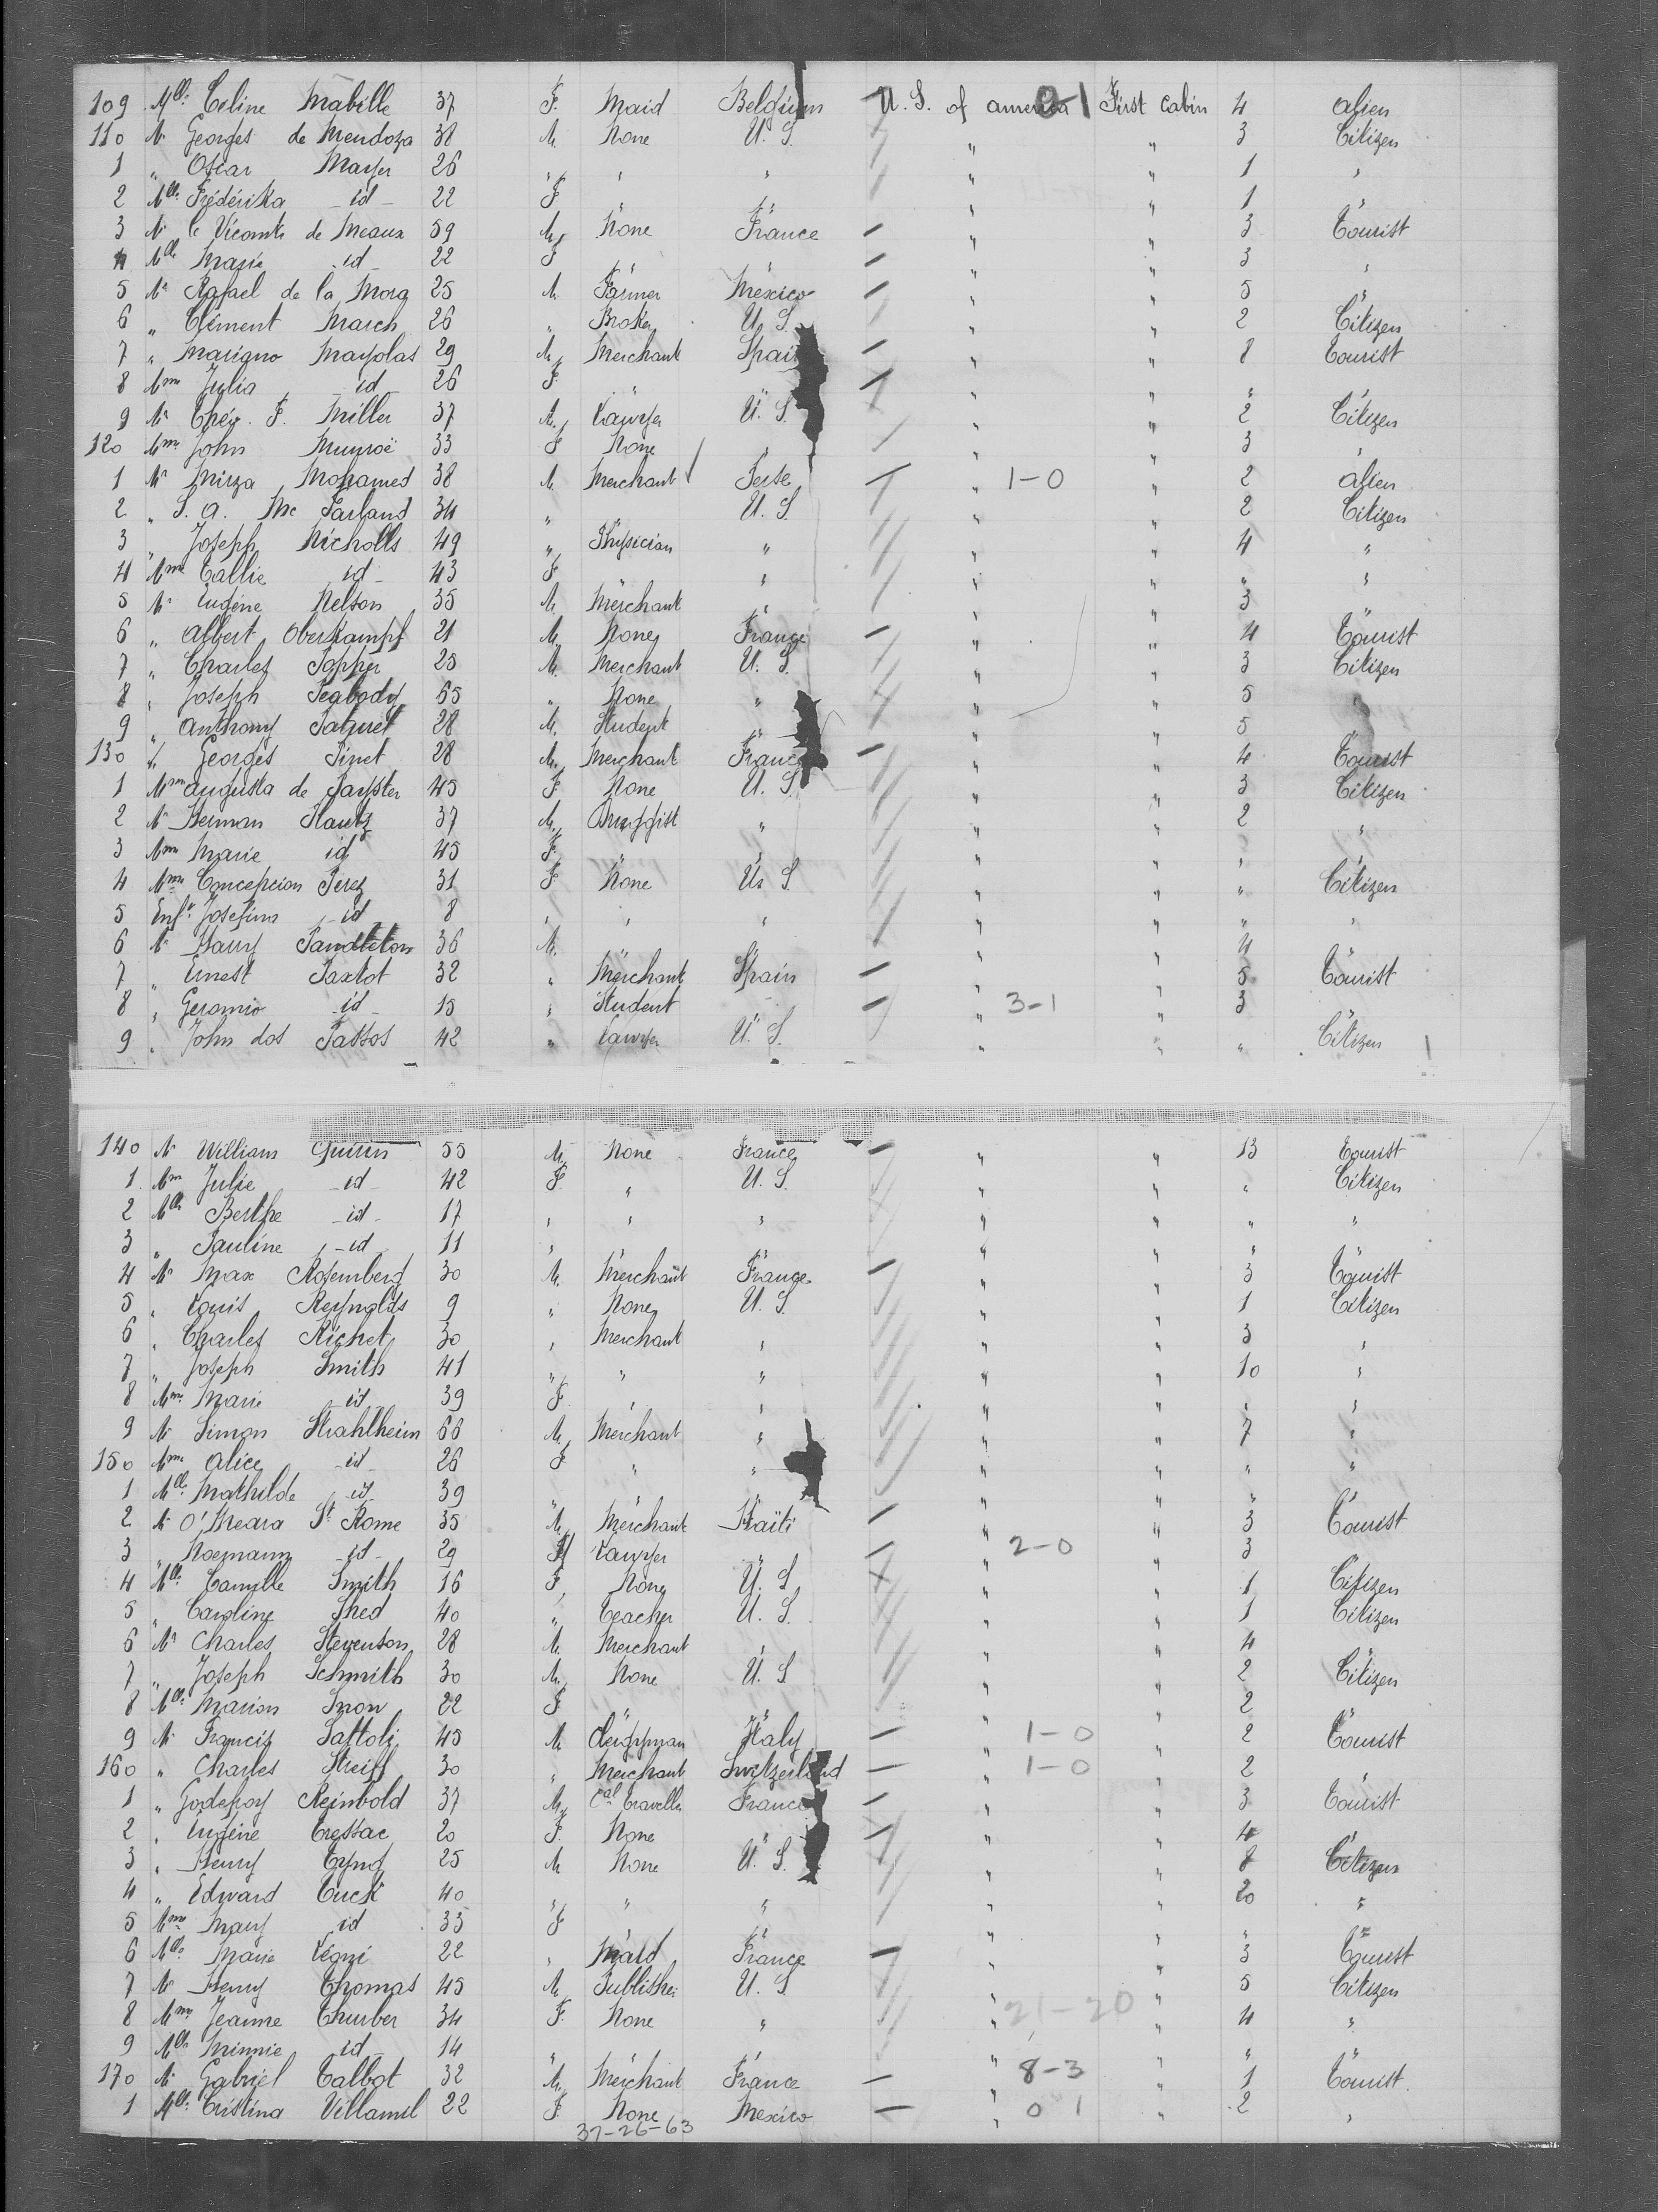 109 Mlle Celine Mabille 37 F. Maid Belgium U.S. of america 0-1 First Cabin 4 alien
110 Mr Georges de Mendoza 38 M. None U.S. " " 3 Citizen
1 " Oscar Mayer 26 " " " " " 1 "
2 Mlle Frédérika id 22 F " " " " 1 "
3 Mr le Vicomte de Meaux 59 M. None France " " 3 Tourist
4 Mlle Marie id 22 F " " " " 3 "
5 Mr Rafael de la Mora 25 M. Farmer Mexico " " 5 "
6 " Clément March 26 " Broker U.S. " " 2 Citizen
7 " Mariano Mayolas 29 M. Merchant Spain " " 8 Tourist
8 Mme Julia id 26 F. " " " " " "
9 Mr F. Miller 37 M. Lawyer U.S. " " 2 Citizen
120 Mme John Munroë 33 F None " " " 3 "
1 Mr Mirza Mohamed 38 M. Merchant Perse " 1-0 " 2 alien
2 " S. a. Mc Farland 34 " U.S. " " 2 Citizen
3 " Joseph Nicholls 49 " Physician " " " 4 "
4 Mme Callie id 43 F " " " " " "
5 Mr Eugène Nelson 35 M. Merchant " " " 3 "
6 " Albert Oberkampf 21 M. None France " " 4 Tourist
7 " Charles 25 M. Merchant U.S. " " 3 Citizen
8 " Joseph Peabody 55 " None " " " 5 "
9 " Anthony Paquet 28 M. Student " " " 5 "
130 Mr Georges Pinet 28 M. Merchant France " " 4 Tourist
1 Mme augusta de Payster 45 F. None U.S. " " 3 Citizen
2 Mr Herman 37 M. Druggist " " " 2 "
3 Mme Marie id 45 F. " " " " " "
4 Mme Concepcion Perez 31 F None U.S. " " " Citizen
5 Enft Josefina id 8 " " " " " " "
6 Mr Harry Pandleton 36 M. " " 4 "
7 " Ernest 32 " Merchant Spain " " 5 Tourist
8 " Geromio id 15 " Student " " 3-1 " 3 "
9 " John dos Passos 42 " Lawyer U.S. " " " Citizen
140 Mr William Guérin 55 M. None France " " 13 Tourist
1 Mme Julie id 42 F. " U.S. " " " Citizen
2 Mlle Berthe id 17 " " " " " " "
3 " Pauline id 11 " " " " " " "
4 Mr Max Rosemberg 30 M. Merchant France " " 3 Tourist
5 " Louis Reynolds 9 " None U.S. " " 1 Citizen
6 " Charles Richet 30 " Merchant " " " 3 "
7 " Joseph Smith 41 " " " " " 10 "
8 Mme Marie id 39 F " " " " " "
9 Mr Simon Strahlheim 66 M. Merchant " " " 7 "
150 Mme Alice id 26 F " " " " " "
1 Mlle Mathilde id 39 " " " " " " "
2 Mr O'Meara St Rome 35 M. Merchant Haïti " " 3 Tourist
3 " id 29 M Lawyer " " 2-0 " 3 "
4 Mlle Camille Smith 16 F None U.S. " " 1 Citizen
5 " Caroline Shed 40 " Teacher U.S. " " 1 Citizen
6 Mr Charles Stevenson 28 M. Merchant " " " 4 "
7 " Joseph Schmith 30 M. None U.S " " 2 Citizen
8 Mlle Marion Snow 22 F " " " " 2 "
9 Mr Francis Sattoli 45 M Clergyman Italy " 1-0 " 2 Tourist
160 " Charles Streiff 30 " Merchant Switzerland " 1-0 " 2 "
1 " Godefroy Reinbold 37 M. Cal Traveller France " " 3 Tourist
2 " Eugène Cressac 20 F. None " " " 4 "
3 " Henry 25 M None U.S. " " 8 Citizen
4 " Edward Tuck 40 " " " " " 20 "
5 Mme Mary id 33 F " " " " " "
6 Mlle Marie 22 " Maid France " " 3 Tourist
7 Mr Henry Thomas 45 M. Publisher U.S. " " 5 Citizen
8 Mme Jeanne Thurber 34 F. None " " 21-20 " 4 "
9 Mlle Minnie id 14 " " " " " " "
170 Mr Gabriel Talbot 32 M. Merchant France " 8-3 " 1 Tourist.
1 Mlle Cristina Villamil 22 F. None Mexico " 0 1 " 2 "
37-26-63